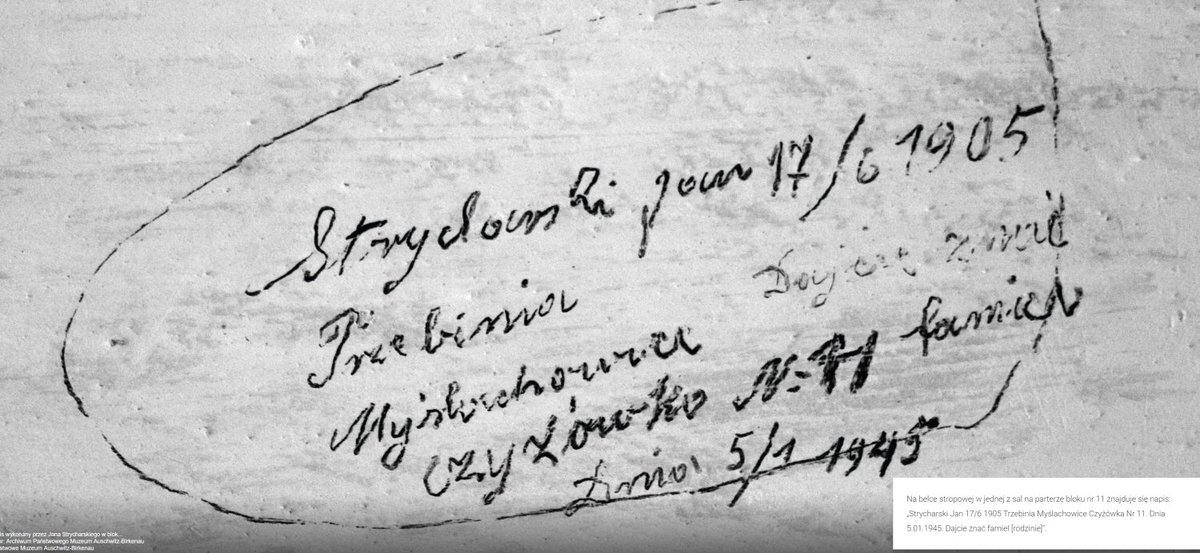 Strycharski Jan 17/6 1905
Trzebinia
Myślachowice
Czyżówka Nr 11
Dnia 5/1 1945
Dajcie znać
famiel
Na belce stropowej w jednej z sal na parterze bloku nr 11 znajduje się napis:
„Strycharski Jan 17/6 1905 Trzebinia Myślachowice Czyżówka Nr 11. Dnia
5.01.1945. Dajcie znać famiel [rodzinie]”.
is wykonany przez Jana Strycharskiego w blok...
Archiwum Państwowego Muzeum Auschwitz-Birkenau
Muzeum Auschwitz-Birkenau